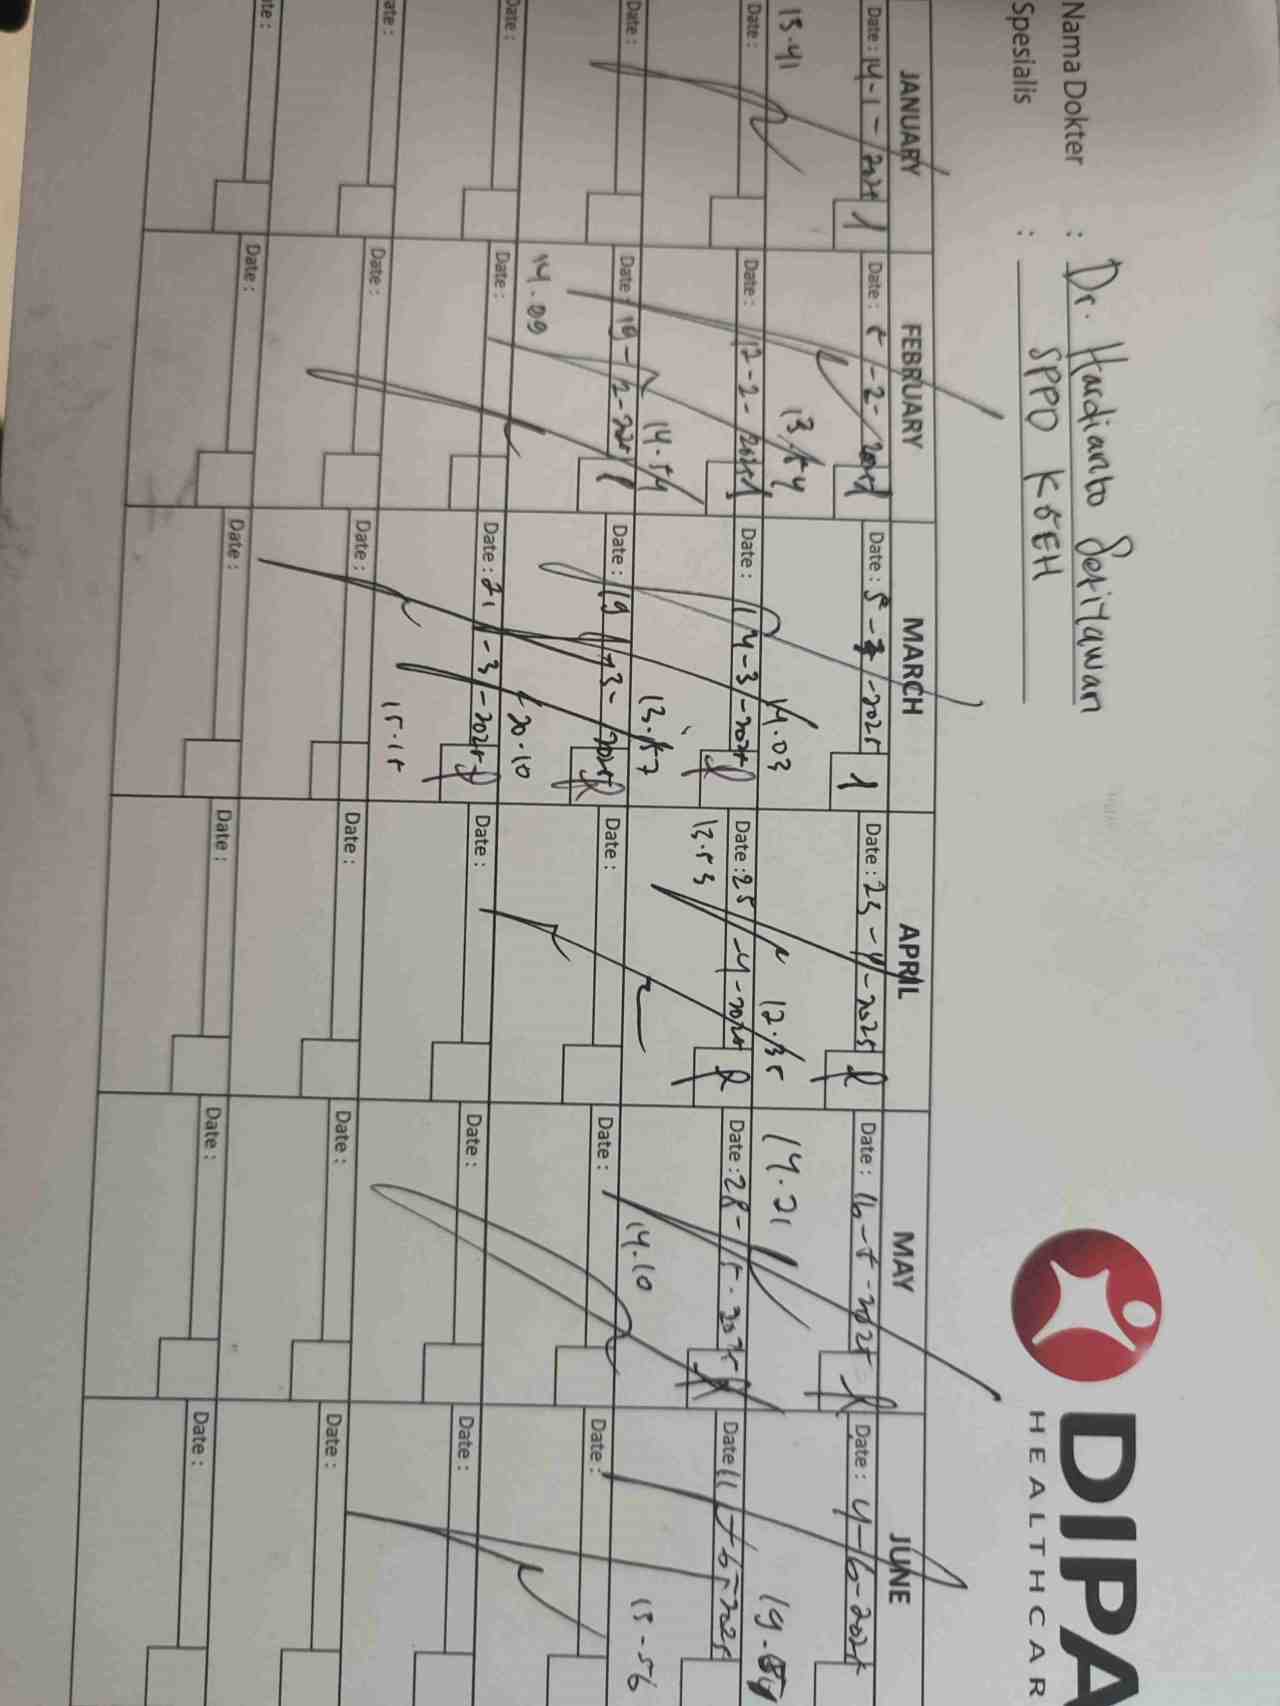 DIPA
HEALTHCAR
Nama Dokter : Dr. Hardianto Setiawan
Spesialis : SPPD KGEH
JANUARY FEBRUARY MARCH APRIL MAY JUNE
Date : 14-1-2025 1 Date : 5-2-2025 1 Date : 5-3-2025 1 Date : 23-4-2025 Date : 16-5-2025 Date : 4-6-2025
13.54 14.03 12.35 14.21
Date : Date : 12-2-2025 1 Date : 14-3-2025 Date : 25-4-2025 Date : 28-5-2025 Date : 11-6-2025
14.54 13.57 13.53 14.10 15-56
Date : Date : 19-2-2025 1 Date : 19-3-2025 Date : Date : Date :
14.09 20.10
Date : Date : Date : 21-3-2025 Date : Date : Date :
15.15
Date : Date : Date : Date : Date :
Date : Date : Date : Date : Date :